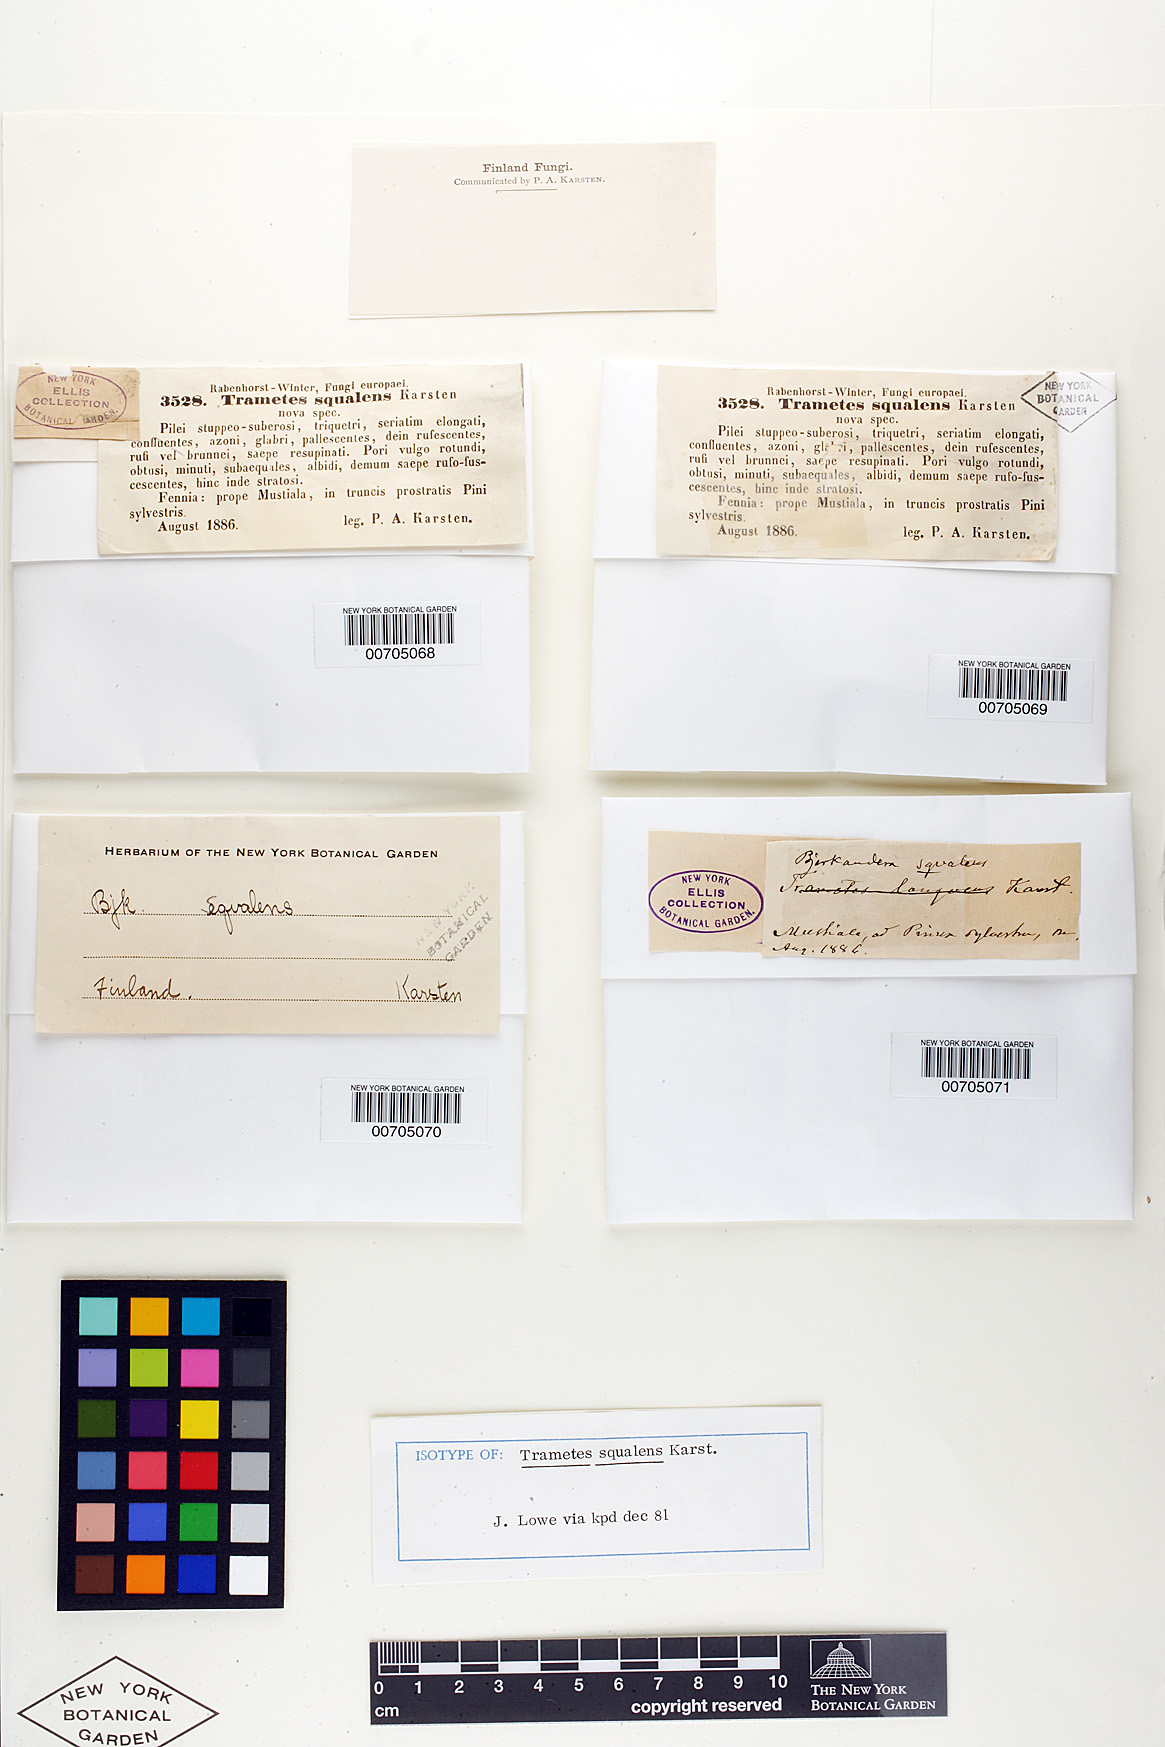 Finland Fungi.
Communicated by P. A. KARSTEN.
NEW YORK
ELLIS
COLLECTION
BOTANICAL GARDEN.
Rabenhorst-Winter, Fungi europaei.
3528. Trametes squalens Karsten
nova spec.
Pilei stuppeo-suberosi, triquetri, seriatim elongati,
confluentes, azoni, glabri, pallescentes, dein rufescentes,
rufi vel brunnei, saepe resupinati. Pori vulgo rotundi,
obtusi, minuti, subaequales, albidi, demum saepe rufo-fus-
cescentes, hinc inde stratosi.
Fennia: prope Mustiala, in truncis prostratis Pini
sylvestris.
August 1886. leg. P. A. Karsten.
NEW YORK BOTANICAL GARDEN
00705068
Rabenhorst-Winter, Fungi europaei.
3528. Trametes squalens Karsten
nova spec.
Pilei stuppeo-suberosi, triquetri, seriatim elongati,
confluentes, azoni, glabri, pallescentes, dein rufescentes,
rufi vel brunnei, saepe resupinati. Pori vulgo rotundi,
obtusi, minuti, subaequales, albidi, demum saepe rufo-fus-
cescentes, hinc inde stratosi.
Fennia: prope Mustiala, in truncis prostratis Pini
sylvestris.
August 1886. leg. P. A. Karsten.
NEW YORK
BOTANICAL
GARDEN
NEW YORK BOTANICAL GARDEN
00705069
HERBARIUM OF THE NEW YORK BOTANICAL GARDEN
Bjk. squalens
Finland. Karsten
NEW YORK
BOTANICAL
GARDEN
NEW YORK BOTANICAL GARDEN
00705070
NEW YORK
ELLIS
COLLECTION
BOTANICAL GARDEN.
Bjerkandera squalens
Trametes Karst.
Mustiala, ad Pinum sylvestrem,
Aug. 1886.
NEW YORK BOTANICAL GARDEN
00705071
ISOTYPE OF: Trametes squalens Karst.
J. Lowe via kpd dec 81
0 1 2 3 4 5 6 7 8 9 10
cm
copyright reserved
THE NEW YORK
BOTANICAL GARDEN
NEW YORK
BOTANICAL
GARDEN